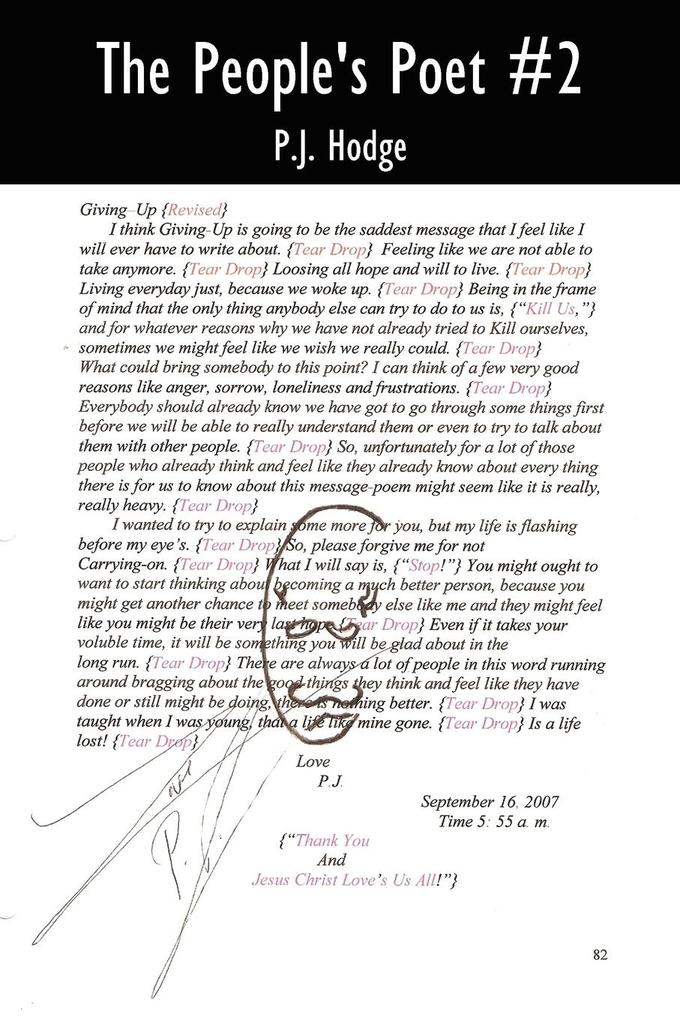 The People's Poet #2
P.J. Hodge
Giving-Up {Revised}
I think Giving-Up is going to be the saddest message that I feel like I
will ever have to write about. {Tear Drop} Feeling like we are not able to
take anymore. {Tear Drop} Loosing all hope and will to live. {Tear Drop}
Living everyday just, because we woke up. {Tear Drop} Being in the frame
of mind that the only thing anybody else can try to do to us is, {"Kill Us,"}
and for whatever reasons why we have not already tried to Kill ourselves,
sometimes we might feel like we wish we really could. {Tear Drop}
What could bring somebody to this point? I can think of a few very good
reasons like anger, sorrow, loneliness and frustrations. {Tear Drop}
Everybody should already know we have got to go through some things first
before we will be able to really understand them or even to try to talk about
them with other people. {Tear Drop} So, unfortunately for a lot of those
people who already think and feel like they already know about every thing
there is for us to know about this message-poem might seem like it is really,
really heavy. {Tear Drop}
I wanted to try to explain some more for you, but my life is flashing
before my eye's. {Tear Drop} So, please forgive me for not
Carrying-on. {Tear Drop} What I will say is, {"Stop!"} You might ought to
want to start thinking about becoming a much better person, because you
might get another chance to meet somebody else like me and they might feel
like you might be their very last hope. {Tear Drop} Even if it takes your
voluble time, it will be something you will be glad about in the
long run. {Tear Drop} There are always a lot of people in this word running
around bragging about the good things they think and feel like they have
done or still might be doing, there is nothing better. {Tear Drop} I was
taught when I was young, that a life like mine gone. {Tear Drop} Is a life
lost! {Tear Drop}
Love
P.J.
September 16, 2007
Time 5: 55 a. m.
{"Thank You
And
Jesus Christ Love's Us All!"}
82